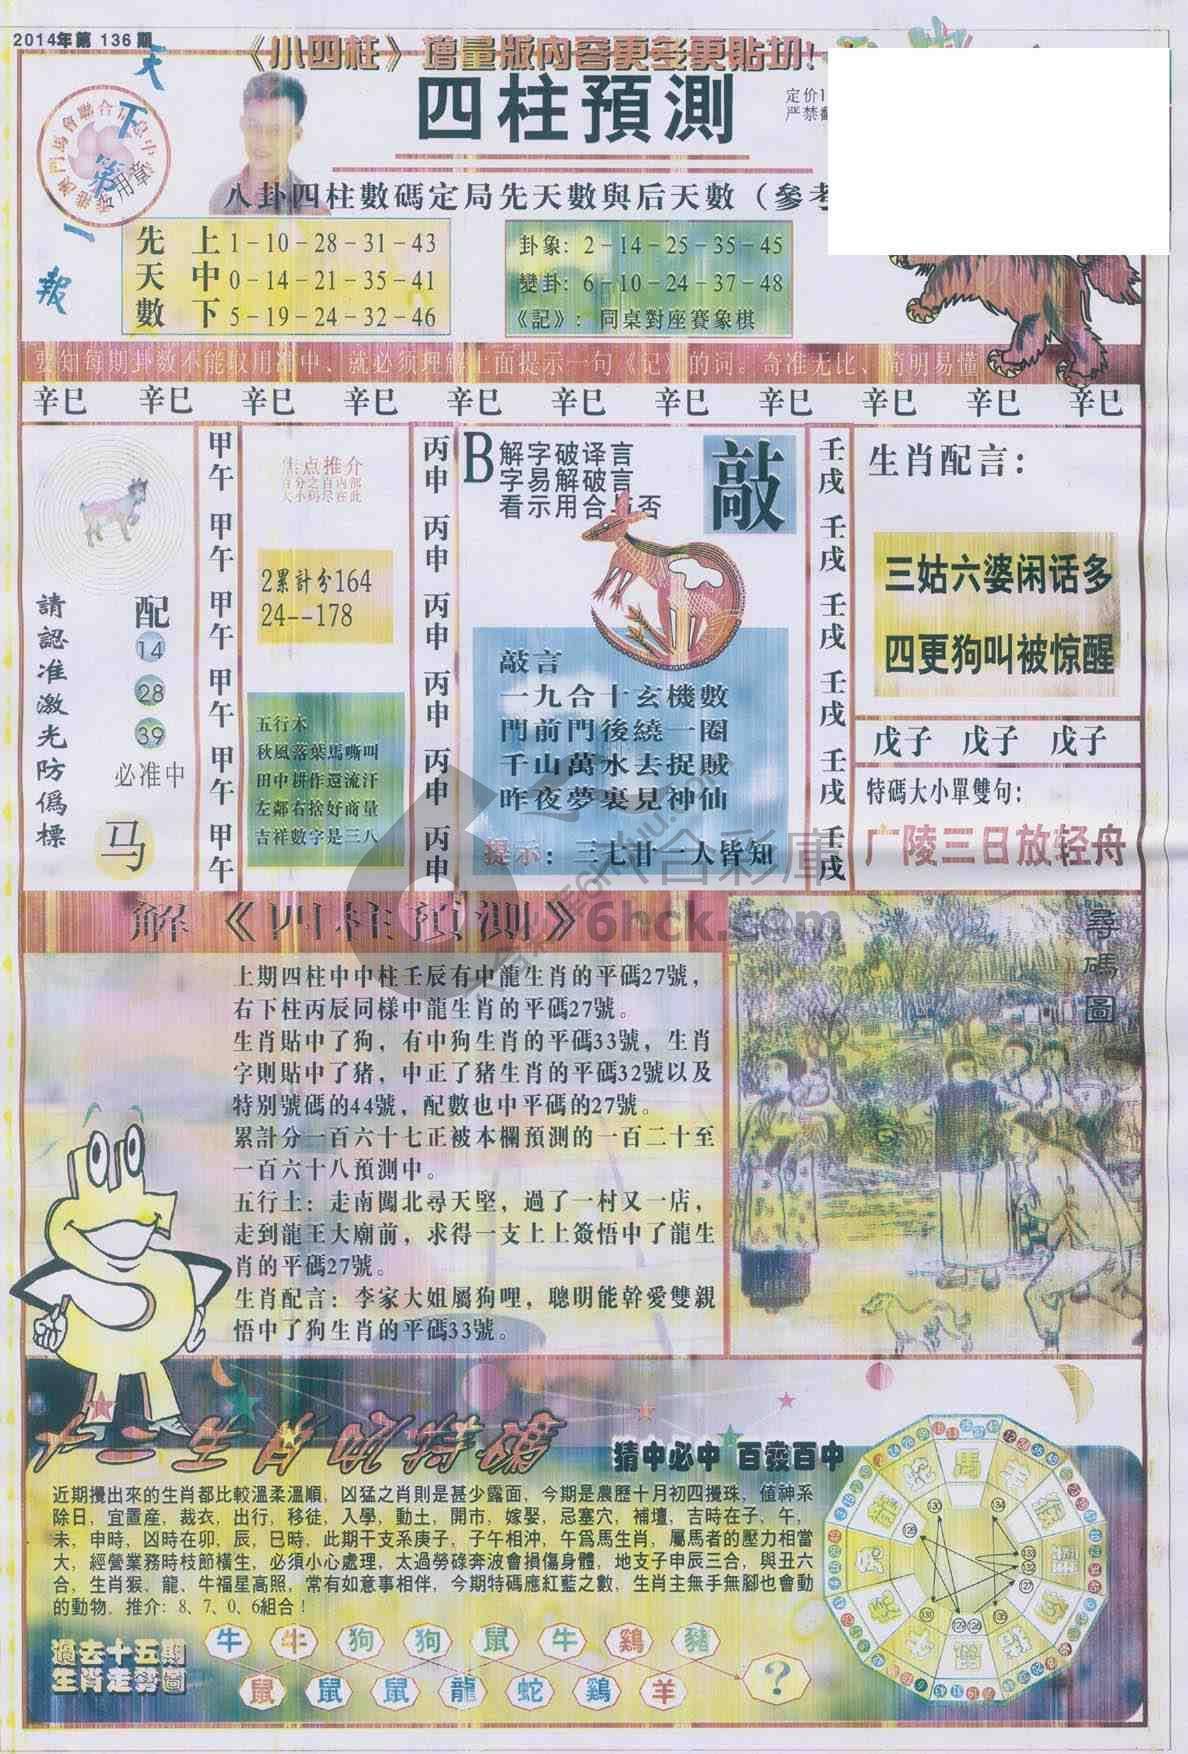 2014年第 136 期
《小四柱》增量版内容更多更貼切!
天下第一報
四柱預測
定价1
严禁
八卦四柱數碼定局先天數與后天數（參考
先天數
上 1-10-28-31-43
中 0-14-21-35-41
下 5-19-24-32-46
卦象: 2-14-25-35-45
變卦: 6-10-24-37-48
《記》: 同桌對座賽象棋
要知每期卦数不能取用准中、就必须理解上面提示一句《记》的词。奇准无比、简明易懂
辛巳 辛巳 辛巳 辛巳 辛巳 辛巳 辛巳 辛巳 辛巳 辛巳 辛巳
請認准激光防僞標
配
14
28
39
必准中
马
甲午 甲午 甲午 甲午 甲午 甲午
焦点推介
百分之百内部
大小码尽在此
2累計分164
24--178
五行木
秋風落葉馬嘶叫
田中耕作還流汗
左鄰右捨好商量
吉祥數字是三八
丙申 丙申 丙申 丙申 丙申 丙申
B
解字破译言
字易解破言
看示用合与否
敲
敲言
一九合十玄機數
門前門後繞一圈
千山萬水去捉賊
昨夜夢裏見神仙
提示: 三七廿一人皆知
壬戌 壬戌 壬戌 壬戌 壬戌 壬戌
生肖配言:
三姑六婆闲话多
四更狗叫被惊醒
戊子 戊子 戊子
特碼大小單雙句:
广陵三日放轻舟
合彩庫
6hck.com
解《四柱預測》
上期四柱中中柱壬辰有中龍生肖的平碼27號，
右下柱丙辰同樣中龍生肖的平碼27號。
生肖貼中了狗，有中狗生肖的平碼33號，生肖
字則貼中了猪，中正了猪生肖的平碼32號以及
特别號碼的44號，配數也中平碼的27號。
累計分一百六十七正被本欄預測的一百二十至
一百六十八預測中。
五行土: 走南闖北尋天堅，過了一村又一店，
走到龍王大廟前，求得一支上上簽悟中了龍生
肖的平碼27號。
生肖配言: 李家大姐屬狗哩，聰明能幹愛雙親
悟中了狗生肖的平碼33號。
尋碼圖
猜中必中 百發百中
近期攪出來的生肖都比較溫柔溫順，凶猛之肖則是甚少露面，今期是農歷十月初四攪珠，值神系
除日，宜置産，裁衣，出行，移徒，入學，動土，開市，嫁娶，忌塞穴，補壇，吉時在子，午，
未，申時，凶時在卯，辰，巳時，此期干支系庚子，子午相沖，午爲馬生肖，屬馬者的壓力相當
大，經營業務時枝節橫生，必須小心處理，太過勞碌奔波會損傷身體，地支子申辰三合，與丑六
合，生肖猴、龍、牛福星高照，常有如意事相伴，今期特碼應紅藍之數，生肖主無手無腳也會動
的動物。推介: 8、7、0、6組合!
過去十五期
生肖走勢圖
牛 牛 狗 狗 鼠 牛 鷄 豬
鼠 鼠 鼠 龍 蛇 鷄 羊 ?